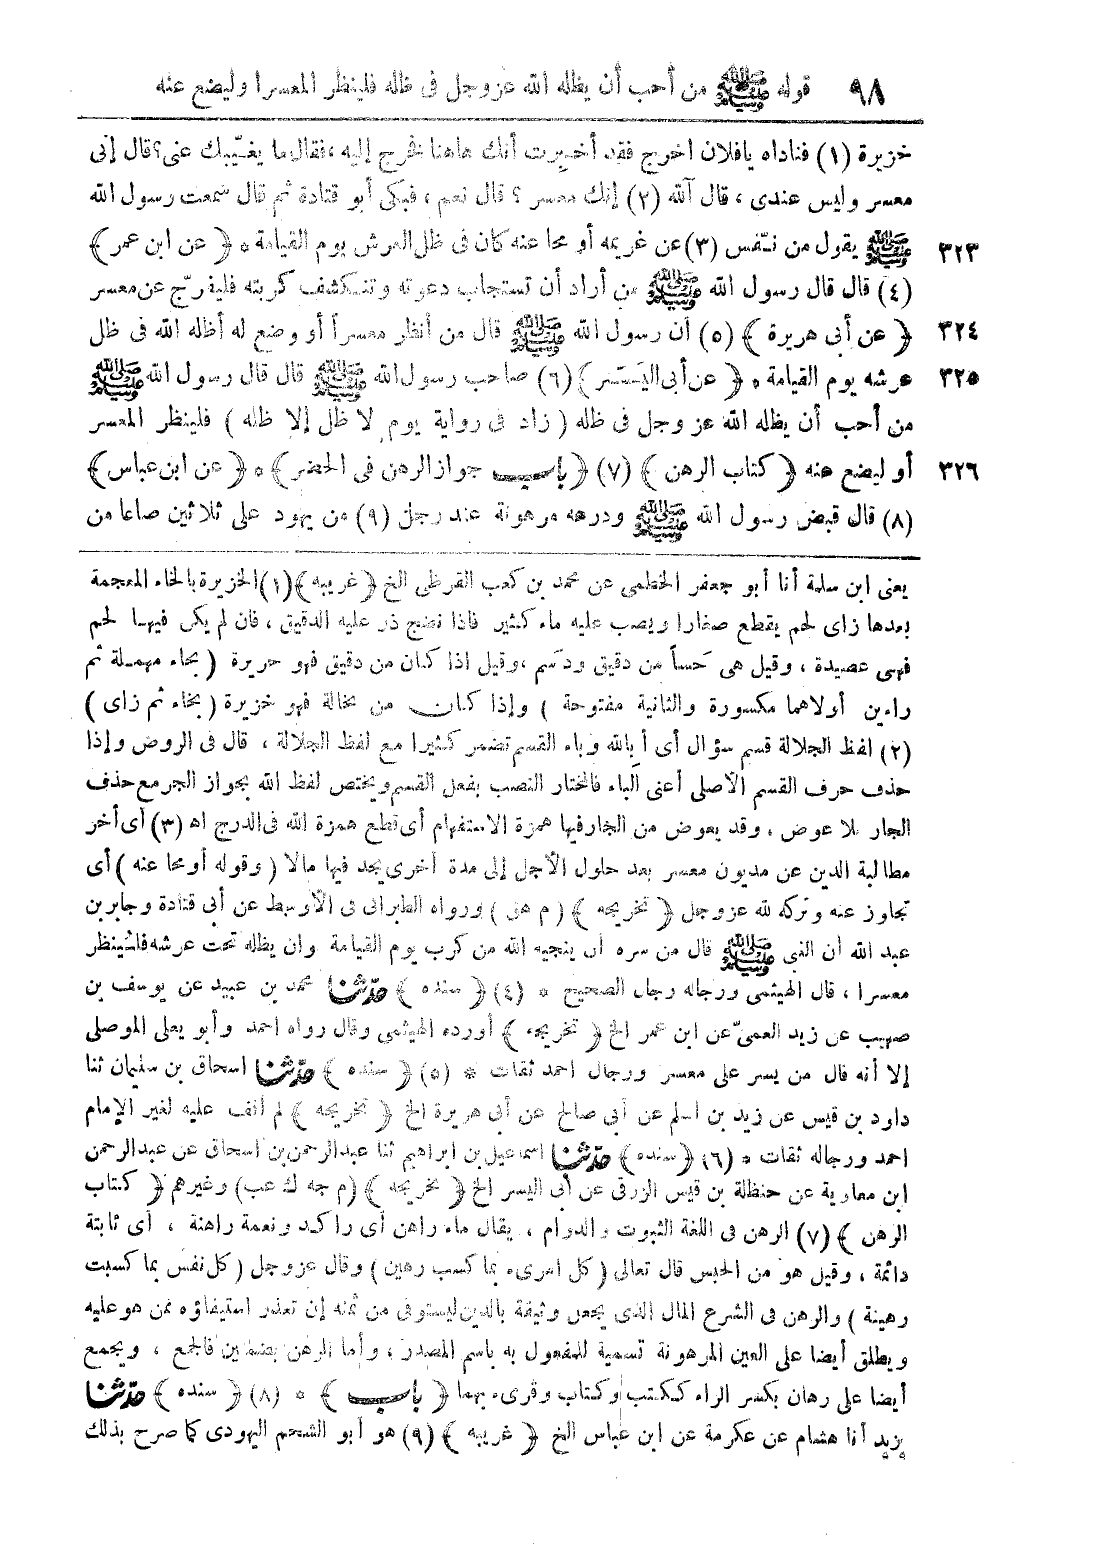 ٩٨ قوله ﷺ من أحب أن يظله الله عز وجل فى ظله فلينظر المعسر أو ليضع عنه
خزيرة (١) فناداه يافلان اخرج فقد أخبرت أنك هاهنا فخرج إليه ، فقال ما يغيّبك عنى؟ قال إنى
معسر وليس عندى ، قال آلله (٢) إنك معسر ؟ قال نعم ، فبكى أبو قتادة ثم قال سمعت رسول الله
٣٢٣ ﷺ يقول من نفّس (٣) عن غريمه أو محا عنه كان فى ظل العرش يوم القيامة * ﴿ عن ابن عمر ﴾
(٤) قال قال رسول الله ﷺ من أراد أن تستجاب دعوته وتنكشف كربته فليفرّج عن معسر
٣٢٤ ﴿ عن أبى هريرة ﴾ (٥) أن رسول الله ﷺ قال من أنظر معسراً أو وضع له أظله الله فى ظل
٣٢٥ عرشه يوم القيامة * ﴿ عن أبى اليَسَر ﴾ (٦) صاحب رسول الله ﷺ قال قال رسول الله ﷺ
من أحب أن يظله الله عز وجل فى ظله ( زاد فى رواية يوم لا ظل إلا ظله ) فلينظر المعسر
٣٢٦ أو ليضع عنه ﴿ كتاب الرهن ﴾ (٧) ﴿ باب جواز الرهن فى الحضر ﴾ * ﴿ عن ابن عباس ﴾
(٨) قال قبض رسول الله ﷺ ودرعه مرهونة عند رجل (٩) من يهود على ثلاثين صاعا من
يعنى ابن سلمة أنا أبو جعفر الخطمى عن محمد بن كعب القرظى الخ ﴿ غريبه ﴾ (١) الخزيرة بالخاء المعجمة
بعدها زاى لحم يقطع صغارا ويصب عليه ماء كثير فاذا نضج ذر عليه الدقيق ، فان لم يكن فيها لحم
فهى عصيدة ، وقيل هى حَساً من دقيق ودسَم ، وقيل اذا كان من دقيق فهو حريرة ( بحاء مهملة ثم
راءين أولاهما مكسورة والثانية مفتوحة ) وإذا كان من نخالة فهو خزيرة ( بخاء ثم زاى )
(٢) لفظ الجلالة قسم سؤال أى أبالله وباء القسم تضمر كثيرا مع لفظ الجلالة ، قال فى الروض وإذا
حذف حرف القسم الأصلى أعنى الباء فالمختار النصب بفعل القسم ويختص لفظ الله بجواز الجر مع حذف
الجار بلا عوض ، وقد يعوض من الجار فيها همزة الاستفهام أى قطع همزة الله فى الدرج اه (٣) أى أخر
مطالبة الدين عن مديون معسر بعد حلول الأجل إلى مدة أخرى يجد فيها مالا ( وقوله أو محا عنه ) أى
تجاوز عنه وتركه لله عز وجل ﴿ تخريجه ﴾ ( م هق ) ورواه الطبرانى فى الأوسط عن أبى قتادة وجابر بن
عبد الله أن النبى ﷺ قال من سره أن ينجيه الله من كرب يوم القيامة وان يظله تحت عرشه فلينظر
معسرا ، قال الهيثمى ورجاله رجال الصحيح * (٤) ﴿ سنده ﴾ حدّثنا محمد بن عبيد عن يوسف بن
صهيب عن زيد العمىّ عن ابن عمر الخ ﴿ تخريجه ﴾ أورده الهيثمى وقال رواه احمد وأبو يعلى الموصلى
إلا أنه قال من يسر على معسر ورجال احمد ثقات * (٥) ﴿ سنده ﴾ حدّثنا اسحاق بن سليمان ثنا
داود بن قيس عن زيد بن اسلم عن أبى صالح عن أبى هريرة الخ ﴿ تخريجه ﴾ لم أقف عليه لغير الإمام
احمد ورجاله ثقات * (٦) ﴿ سنده ﴾ حدّثنا اسماعيل بن ابراهيم ثنا عبدالرحمن بن اسحاق عن عبدالرحمن
ابن معاوية عن حنظلة بن قيس الزرقى عن أبى اليسر الخ ﴿ تخريجه ﴾ ( م جه ك عب ) وغيرهم ﴿ كتاب
الرهن ﴾ (٧) الرهن فى اللغة الثبوت والدوام ، يقال ماء راهن أى راكد ونعمة راهنة ، أى ثابتة
دائمة ، وقيل هو من الحبس قال تعالى ( كل امرىء بما كسب رهين ) وقال عز وجل ( كل نفس بما كسبت
رهينة ) والرهن فى الشرع المال الذى يجعل وثيقة بالدين ليستوفى من ثمنه إن تعذر استيفاؤه ممن هو عليه
ويطلق أيضا على العين المرهونة تسمية للمفعول به باسم المصدر ، وأما الرهن بضمتين فالجمع ، ويجمع
أيضا على رهان بكسر الراء ككتب وكتاب وقرىء بهما ﴿ باب ﴾ * (٨) ﴿ سنده ﴾ حدّثنا
يزيد أنا هشام عن عكرمة عن ابن عباس الخ ﴿ غريبه ﴾ (٩) هو أبو الشحم اليهودى كما صرح بذلك